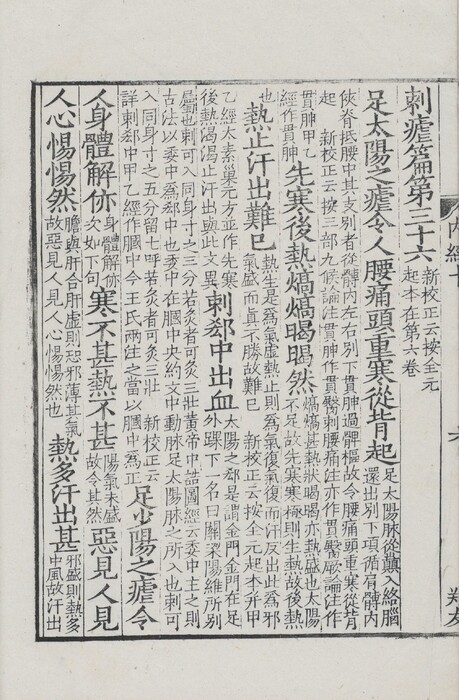 刺瘧篇第三十六
新校正云按全元
起本在第六卷
足太陽之瘧令人腰痛頭重寒從背起
足太陽脉從巔入絡腦
還出別下項循肩髆內
俠脊抵腰中其支別者從髆內左右別下貫胛過髀樞故令腰痛頭重寒從背
起 新校正云按三部九候論注貫胛作貫臀刺腰痛注亦作貫臀厥論注作
貫胛甲乙
經作貫胛
先寒後熱熇熇暍暍然
熇熇甚熱狀暍暍亦熱盛也太陽
不足故先寒寒極則生熱故後熱
也
熱止汗出難已
熱生是爲氣虚熱止則爲氣復氣復而汗反出此爲邪
氣盛而眞不勝故難已 新校正云按全元起本并甲
乙經太素巢元方並作先寒
後熱渴渴止汗出與此文異
刺郄中出血
太陽之郄是謂金門金門在足
外踝下一名曰關梁陽維所別
屬也刺可入同身寸之三分若灸者可灸三壯黄帝中誥圖經云委中主之則
古法以委中爲郄中也委中在膕中央約文中動脉足太陽脉之所入也刺可
入同身寸之五分留七呼若灸者可灸三壯 新校正云
詳刺郄中甲乙經作膕中今王氏兩注之當以膕中爲正
足少陽之瘧令
人身體解㑊
身體解㑊
次如下句
寒不甚熱不甚
陽氣未盛
故令其然
惡見人見
人心惕惕然
膽與肝合肝虚則恐邪薄其氣
故惡見人見人心惕惕然也
熱多汗出甚
邪盛則熱多
中風故汗出